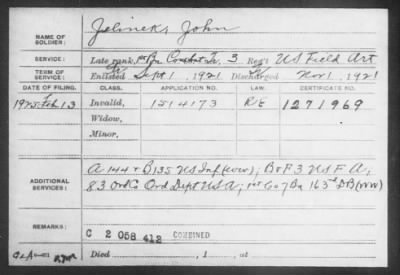 NAME OF SOLDIER: Jelineks John
SERVICE: Late rank, Pvt Combat Tr. 3, Reg't US Field Art
TERM OF SERVICE: Enlisted Sept 1, 1921 Discharged Nov 1, 1921
DATE OF FILING. CLASS. APPLICATION NO. LAW. CERTIFICATE NO.
1925 Feb 13 Invalid, 1514173 R/E 1271969
Widow,
Minor,
ADDITIONAL SERVICES: A 144 + B 135 US Inf (WW); B + F 3 US F A;
83 Ord Co Ord Dept USA; 1st Co 7 Bn 163d DB (WW)
REMARKS:
C 2 058 412 COMBINED
Died , 1 , at